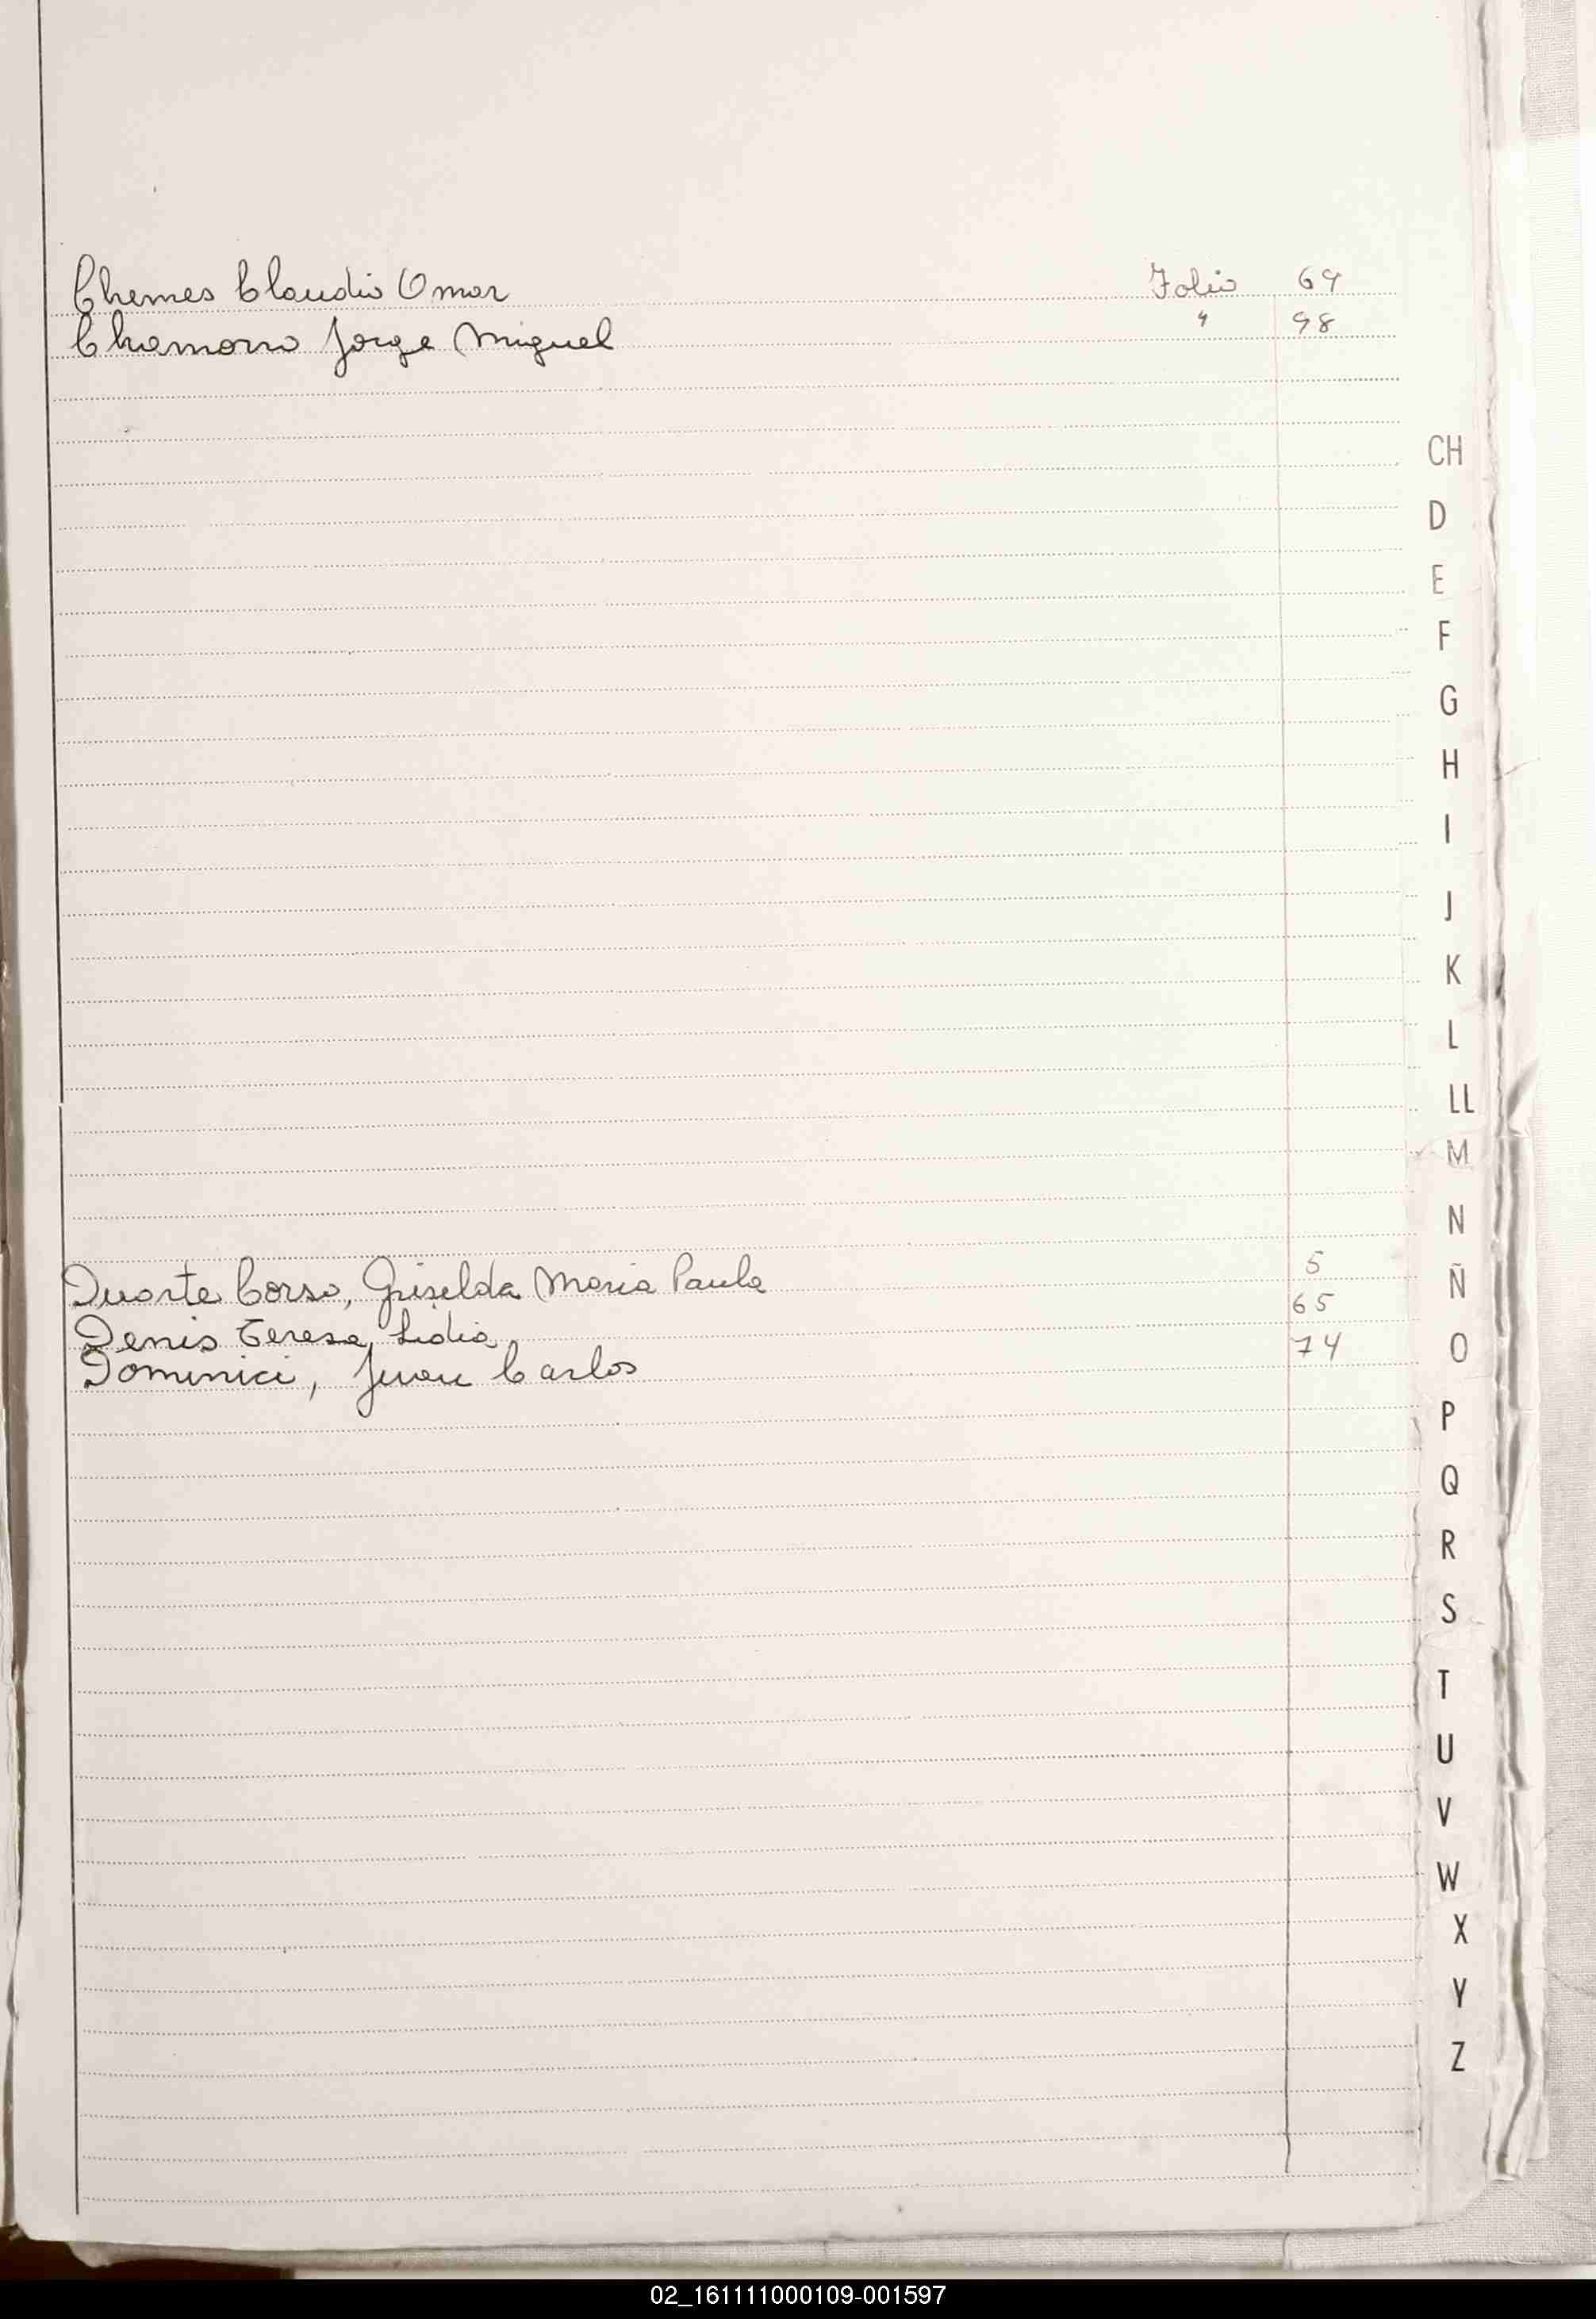 Chemes Claudio Omar Folio 69
Chamorro Jorge Miguel " 98
CH
D
E
F
G
H
I
J
K
L
LL
M
N
Duarte Corso, Griselda Maria Paula 5
Ñ
Denis Teresa Lidia 65
Dominici, Juan Carlos 74
O
P
Q
R
S
T
U
V
W
X
Y
Z
02_161111000109-001597